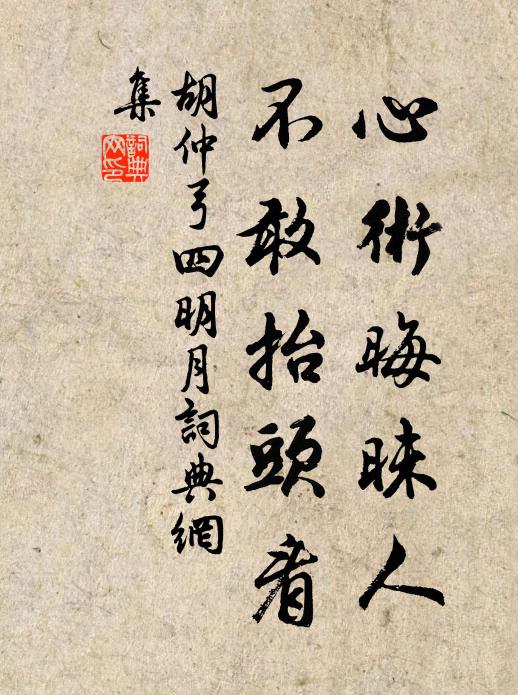 心術晦昧人
不敢抬頭看
胡仲弓四明月詞典網
集
詞典
网印